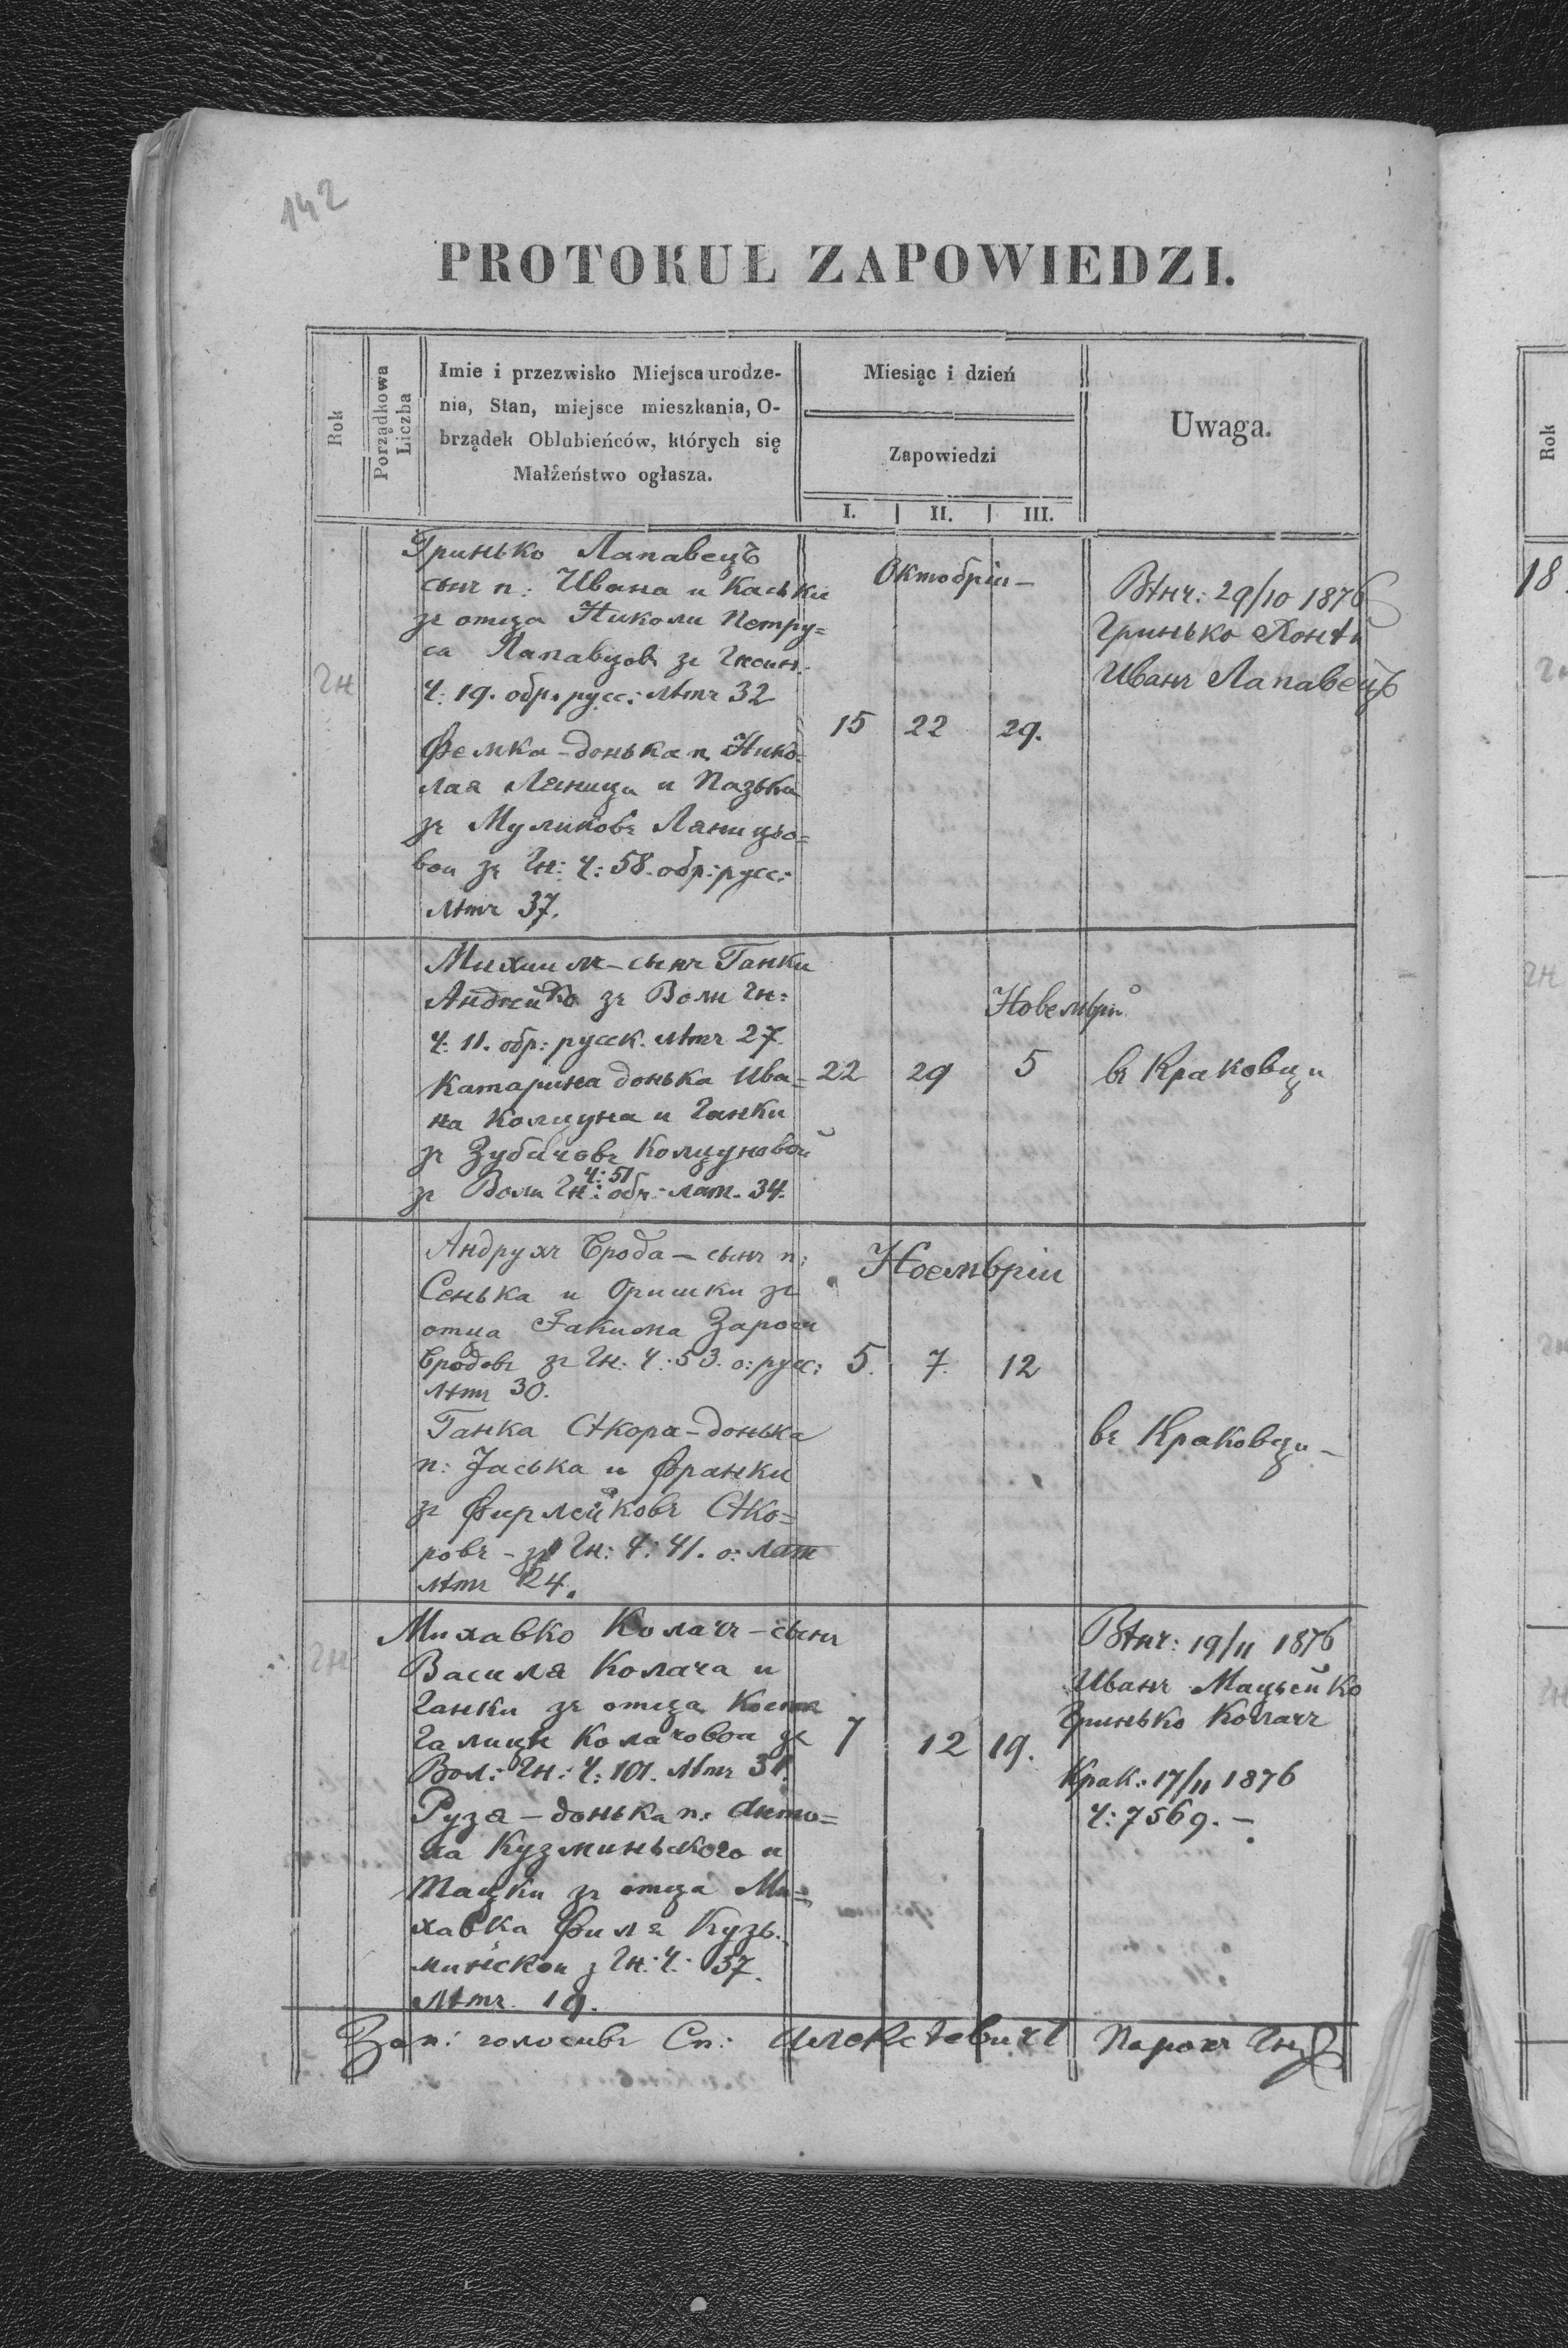 142
PROTOKUŁ ZAPOWIEDZI.
Rok
Porządkowa
Liczba
Imie i przezwisko Miejsca urodze-
nia, Stan, miejsce mieszkania, O-
brządek Oblubieńców, których się
Małżeństwo ogłasza.
Miesiąc i dzień
Zapowiedzi
I. II. III.
Uwaga.
Гн
Гринько Лапавецъ
сынъ п: Ивана и Каськи
зъ отца Николи Петру=
са Лапавцôвъ зъ
Ч: 19. обр. русс: лѣтъ 32
Фемка - донька п. Нико=
лая Ляници и Пазьки
зъ Муликôвъ Ляницьо=
вои зъ Гн: Ч: 58. обр: русс:
лѣтъ 37.
Октобрiи -
15 22 29.
Вѣнч: 29/10 1876
Гринько
Иванъ Лапавецъ
Михаилъ - сынъ Ганки
Андрейко зъ Воли Гн:
Ч: 11. обр: русск. лѣтъ 27.
Катарина донька Ива=
на Колцуна и Ганки
зъ Зубачôвъ Колцуновой
Ч: 51
зъ Воли Гн: обр: лат. 34.
Новемврiй
22 29 5
въ Краковци
Андрухъ Брода - сынъ п:
Сенька и Оришки зъ
отца Якима
Бродôвъ зъ Гн: Ч: 53. о: русс:
лѣтъ 30.
Ганка Сѣкора - донька
п: Яська и Франки
зъ Фирлейкôвъ Сѣко=
рôвъ - зъ Гн: Ч: 41. о: лат
лѣтъ 24.
Ноемврiи
5. 7. 12
въ Краковци -
Гн
Михавко Колачъ - сынъ
Василя Колача и
Ганки зъ отца
Колачовои зъ
Вол: Гн: Ч: 101. лѣтъ 31.
Рузя - донька п: Анто=
на Кузминьского и
Мацки зъ отца Ми=
хавка Филя Кузь-
минськои з Гн: Ч: 37.
лѣтъ 19.
7 12 19.
Вѣнч: 19/11 1876
Иванъ Мацейко
Гринько Колачъ
Крак: 17/11 1876
Ч: 7569. -
Зап: голосивъ Сп: Парохъ
Rok
18
Гн